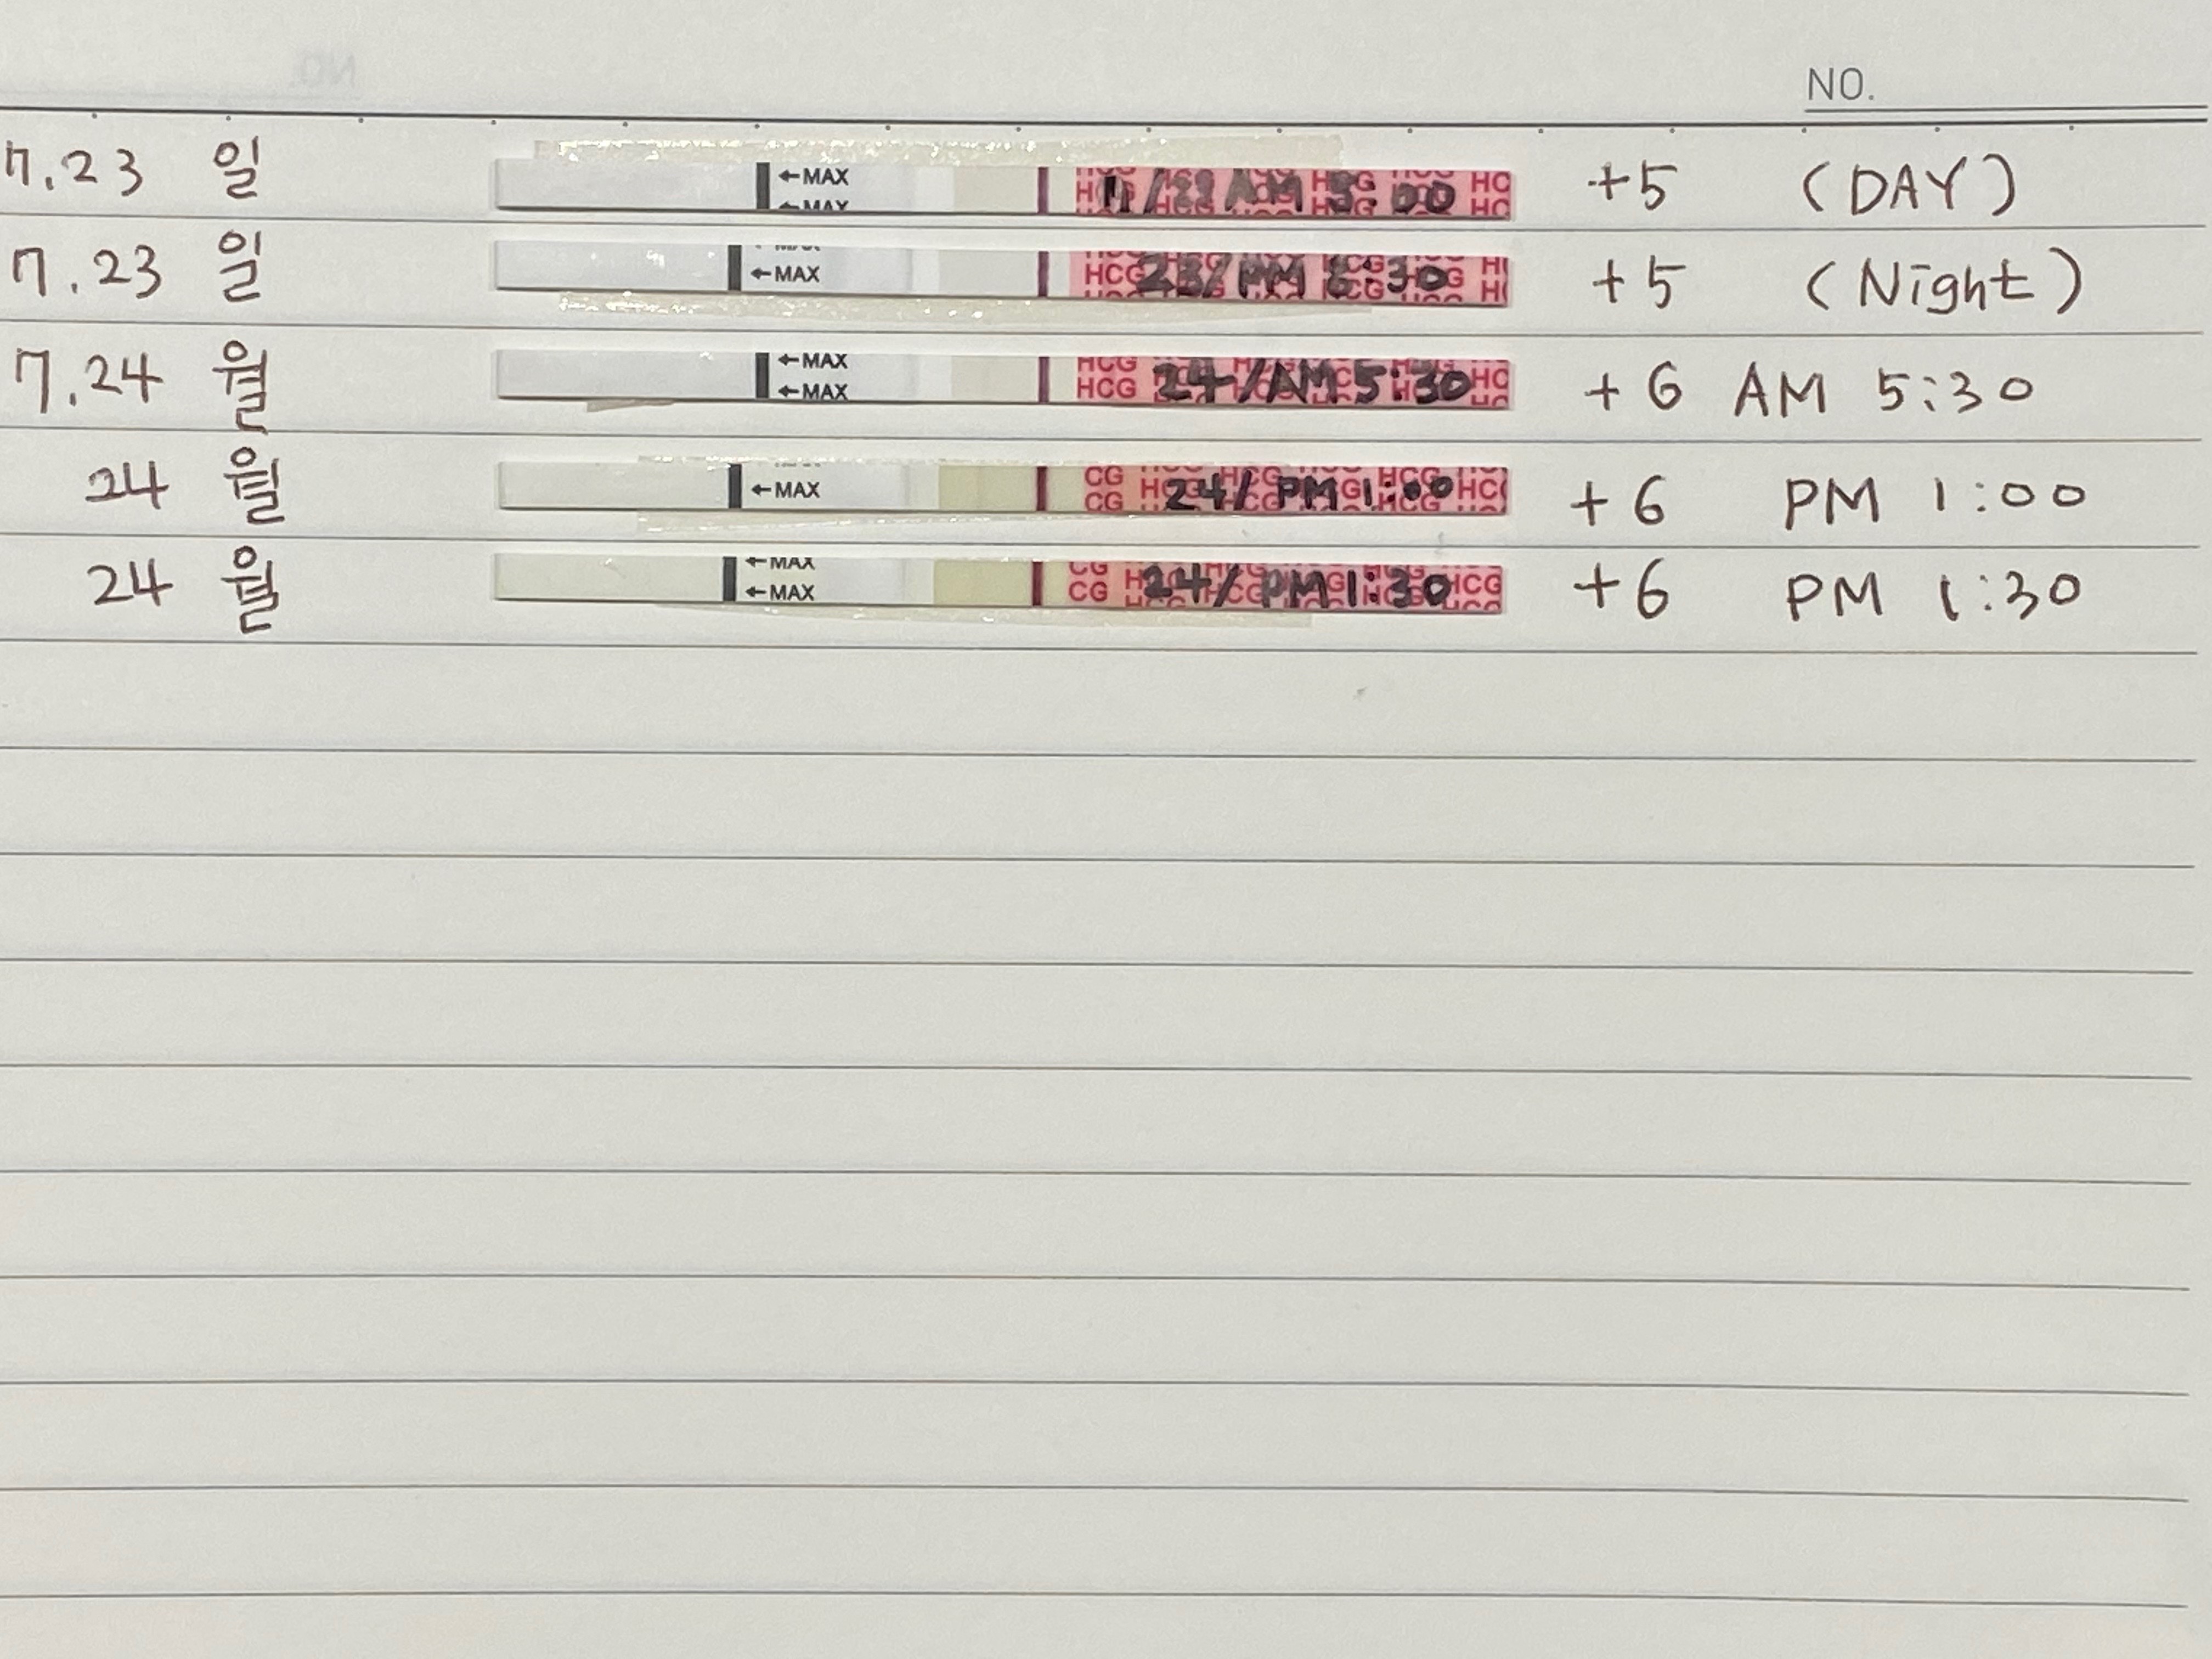 NO.
7.23 일 ←MAX ←MAX HCG AM 3:00 +5 (DAY)
7.23 일 ←MAX HCG 23/PM 8:30 +5 (Night)
7.24 월 ←MAX ←MAX HCG HCG 24/AM 5:30 +6 AM 5:30
24 월 ←MAX CG HCG CG 24/PM 1:00 +6 PM 1:00
24 월 ←MAX ←MAX CG HCG CG 24/PM 1:30 +6 PM 1:30